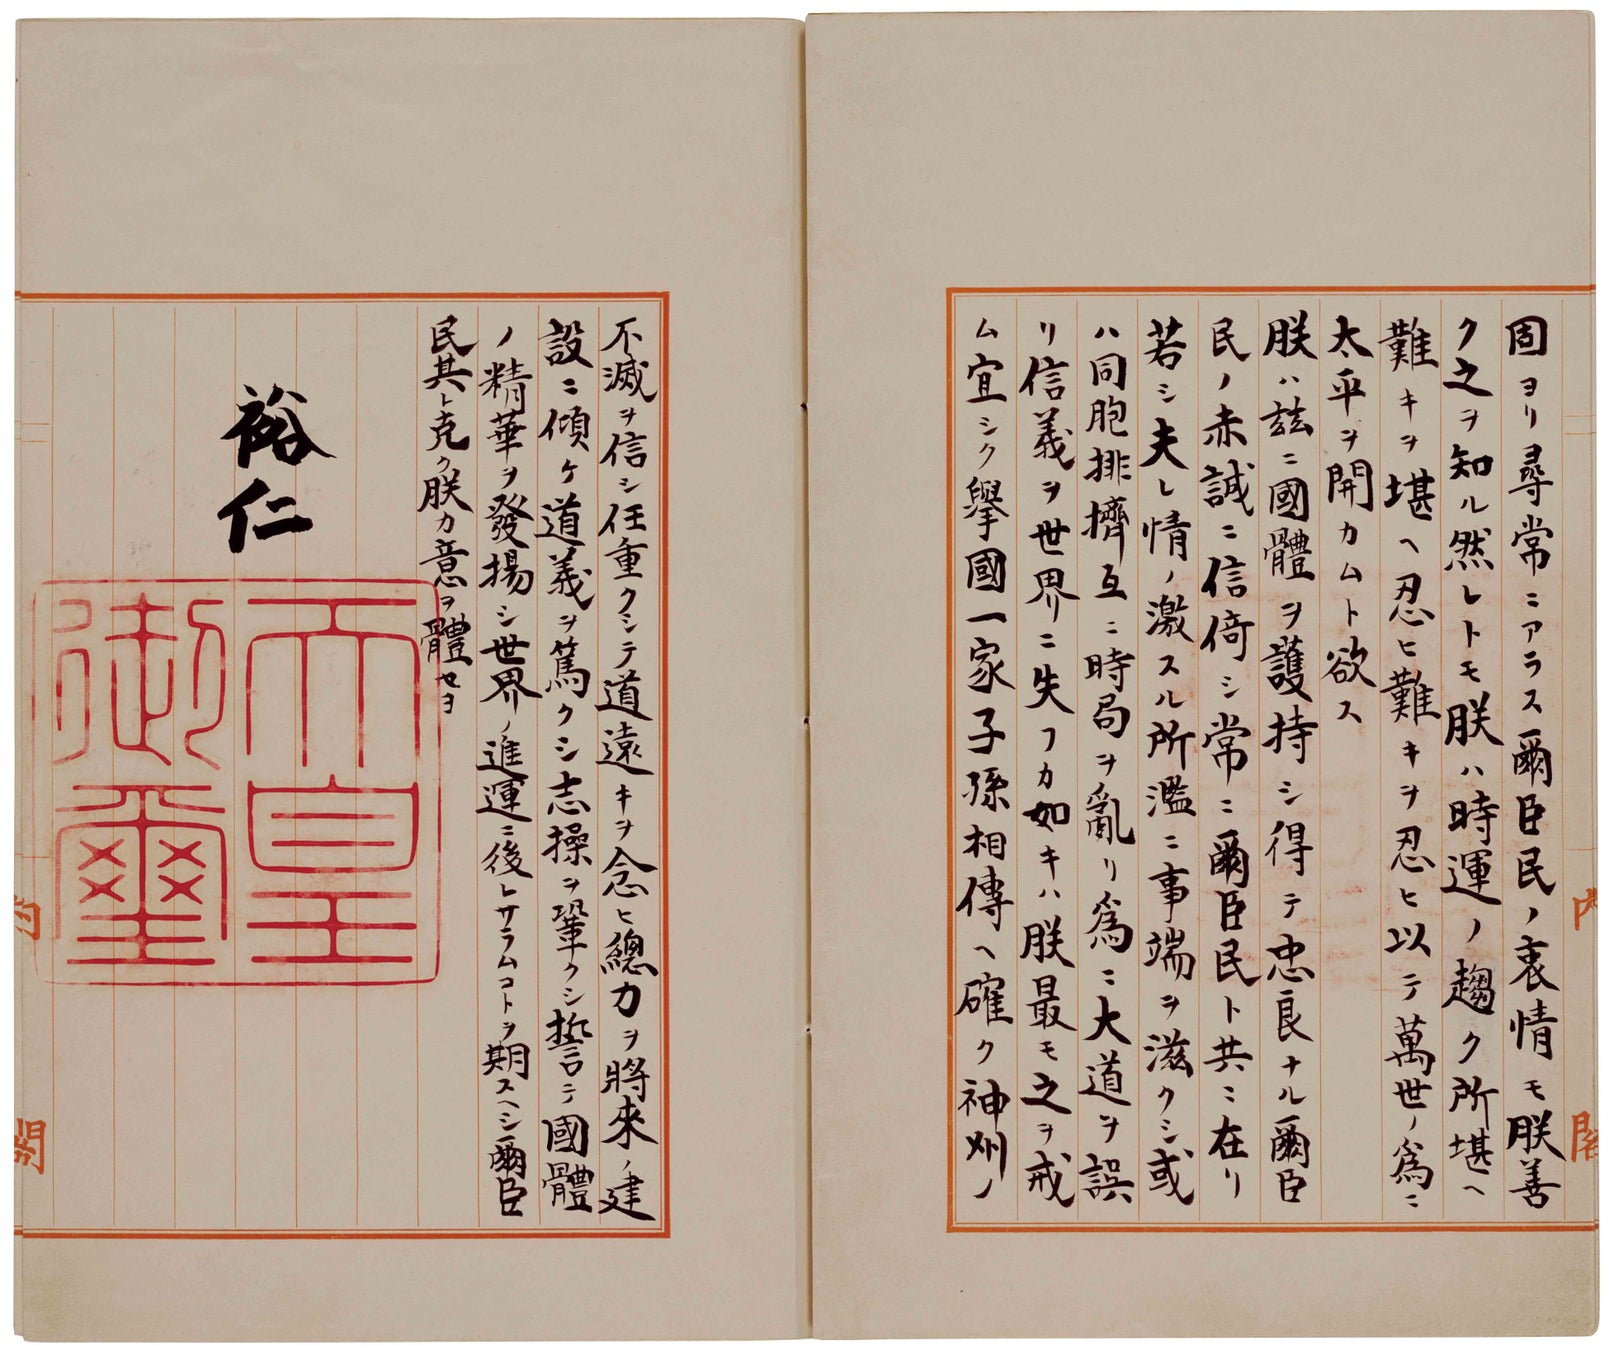 固ヨリ尋常ニアラス爾臣民ノ衷情モ朕善
ク之ヲ知ル然レトモ朕ハ時運ノ趨ク所堪ヘ
難キヲ堪ヘ忍ヒ難キヲ忍ヒ以テ萬世ノ爲ニ
太平ヲ開カムト欲ス
朕ハ玆ニ國體ヲ護持シ得テ忠良ナル爾臣
民ノ赤誠ニ信倚シ常ニ爾臣民ト共ニ在リ
若シ夫レ情ノ激スル所濫ニ事端ヲ滋クシ或
ハ同胞排擠互ニ時局ヲ亂リ爲ニ大道ヲ誤
リ信義ヲ世界ニ失フカ如キハ朕最モ之ヲ戒
ム宜シク擧國一家子孫相傳ヘ確ク神州ノ
不滅ヲ信シ任重クシテ道遠キヲ念ヒ總力ヲ將來ノ建
設ニ傾ケ道義ヲ篤クシ志操ヲ鞏クシ誓テ國體
ノ精華ヲ發揚シ世界ノ進運ニ後レサラムコトヲ期スヘシ爾臣
民其レ克ク朕カ意ヲ體セヨ
裕仁
天皇
御璽
内閣
内閣